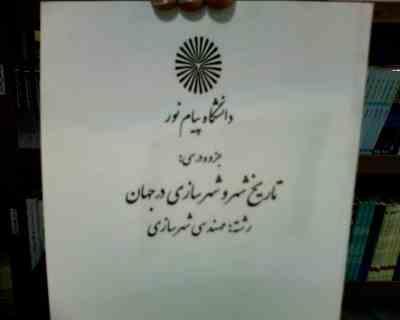 دانشگاه پیام نور
جزوه درسی:
تاریخ شهر و شهرسازی در جهان
رشته: مهندسی شهرسازی